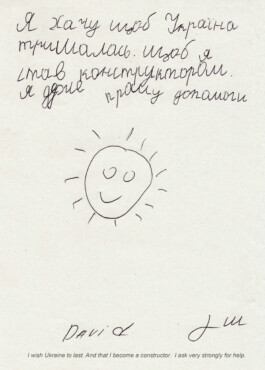 Я хачу щоб Україна
тришалась. щоб я
став конструктором.
я дуже прашу допомоги
David
I wish Ukraine to last. And that I become a constructor. I ask very strongly for help.